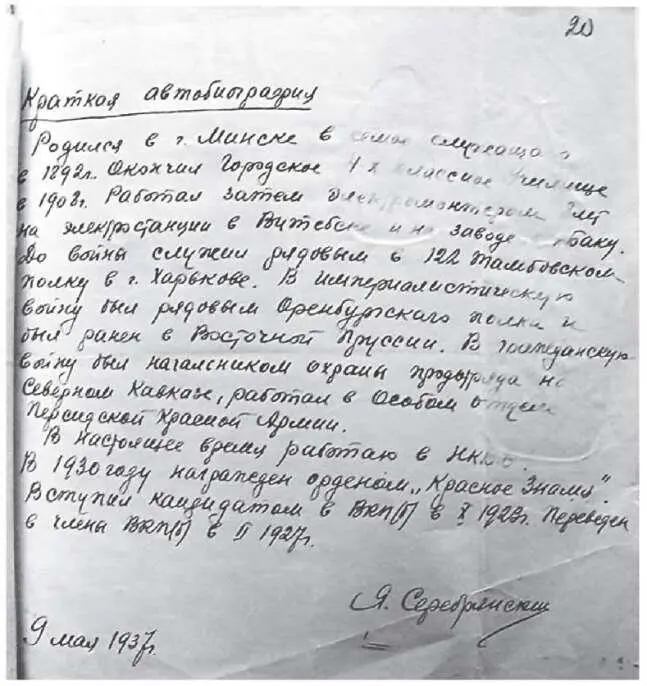 20
Краткая автобиография
Родился в г. Минске в семье служащего
в 1892г. Окончил Городское 4х классное Училище
в 1908г. Работал затем электромонтером лет
на электростанции в Витебске и на заводе Баку.
До войны служил рядовым в 122 Тамбовском
полку в г. Харькове. В империалистическую
войну был рядовым Оренбургского полка и
был ранен в Восточной Пруссии. В гражданскую
войну был начальником охраны продотряда на
Северном Кавказе, работал в Особом отделе
Персидской Красной Армии.
В настоящее время работаю в НКВД.
В 1930 году награжден орденом „Красное Знамя".
Вступил кандидатом в ВКП(б) в X 1923г. Переведен
в члены ВКП(б) в II 1927г.
Я. Серебрянский
9 мая 1937г.